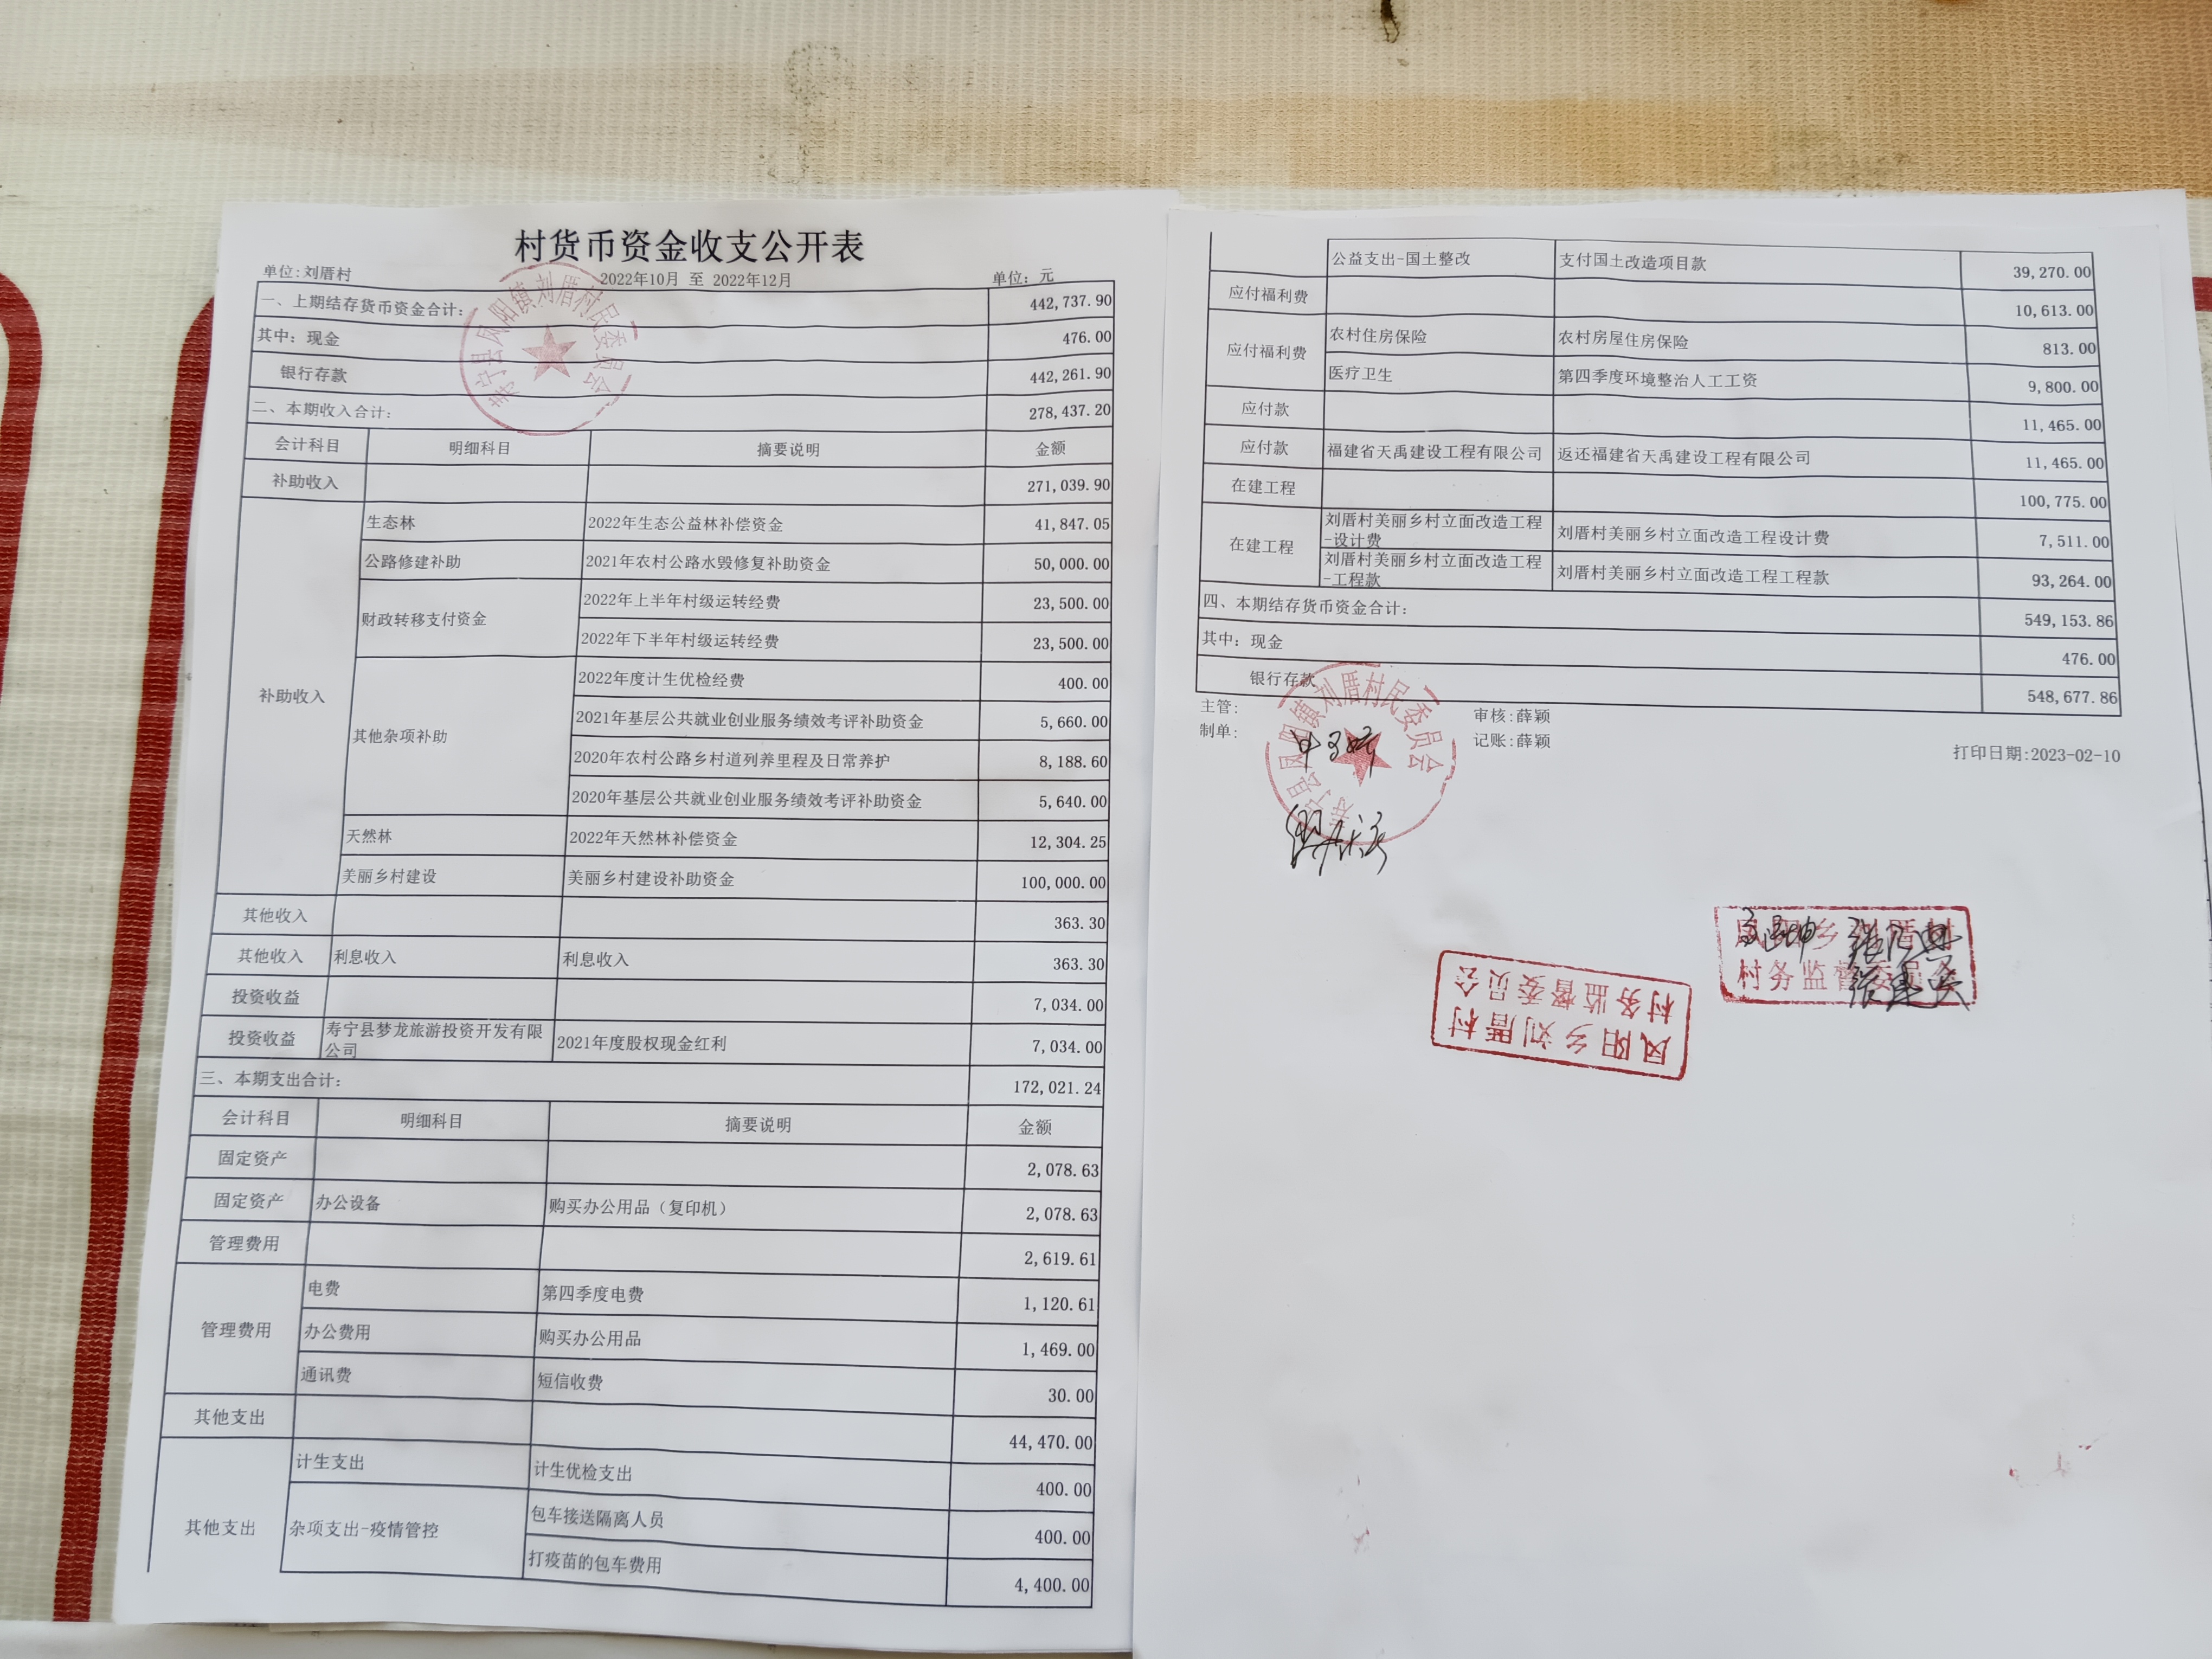 村货币资金收支公开表
单位:刘厝村 2022年10月 至 2022年12月 单位：元
一、上期结存货币资金合计： 442,737.90
其中：现金 476.00
银行存款 442,261.90
二、本期收入合计： 278,437.20
会计科目 明细科目 摘要说明 金额
补助收入 271,039.90
补助收入 生态林 2022年生态公益林补偿资金 41,847.05
公路修建补助 2021年农村公路水毁修复补助资金 50,000.00
财政转移支付资金 2022年上半年村级运转经费 23,500.00
2022年下半年村级运转经费 23,500.00
其他杂项补助 2022年度计生优检经费 400.00
2021年基层公共就业创业服务绩效考评补助资金 5,660.00
2020年农村公路乡村道列养里程及日常养护 8,188.60
2020年基层公共就业创业服务绩效考评补助资金 5,640.00
天然林 2022年天然林补偿资金 12,304.25
美丽乡村建设 美丽乡村建设补助资金 100,000.00
其他收入 363.30
其他收入 利息收入 利息收入 363.30
投资收益 7,034.00
投资收益 寿宁县梦龙旅游投资开发有限公司 2021年度股权现金红利 7,034.00
三、本期支出合计： 172,021.24
会计科目 明细科目 摘要说明 金额
固定资产 2,078.63
固定资产 办公设备 购买办公用品（复印机） 2,078.63
管理费用 2,619.61
管理费用 电费 第四季度电费 1,120.61
办公费用 购买办公用品 1,469.00
通讯费 短信收费 30.00
其他支出 44,470.00
其他支出 计生支出 计生优检支出 400.00
杂项支出-疫情管控 包车接送隔离人员 400.00
打疫苗的包车费用 4,400.00
寿宁县凤阳镇刘厝村民委员会
公益支出-国土整改 支付国土改造项目款 39,270.00
应付福利费 10,613.00
应付福利费 农村住房保险 农村房屋住房保险 813.00
医疗卫生 第四季度环境整治人工工资 9,800.00
应付款 11,465.00
应付款 福建省天禹建设工程有限公司 返还福建省天禹建设工程有限公司 11,465.00
在建工程 100,775.00
在建工程 刘厝村美丽乡村立面改造工程-设计费 刘厝村美丽乡村立面改造工程设计费 7,511.00
刘厝村美丽乡村立面改造工程-工程款 刘厝村美丽乡村立面改造工程工程款 93,264.00
四、本期结存货币资金合计： 549,153.86
其中：现金 476.00
银行存款 548,677.86
主管： 审核:薛颖
制单： 记账:薛颖
打印日期:2023-02-10
寿宁县凤阳镇刘厝村民委员会
凤阳乡刘厝村
村务监督委员会
凤阳乡刘厝村
村务监督委员会